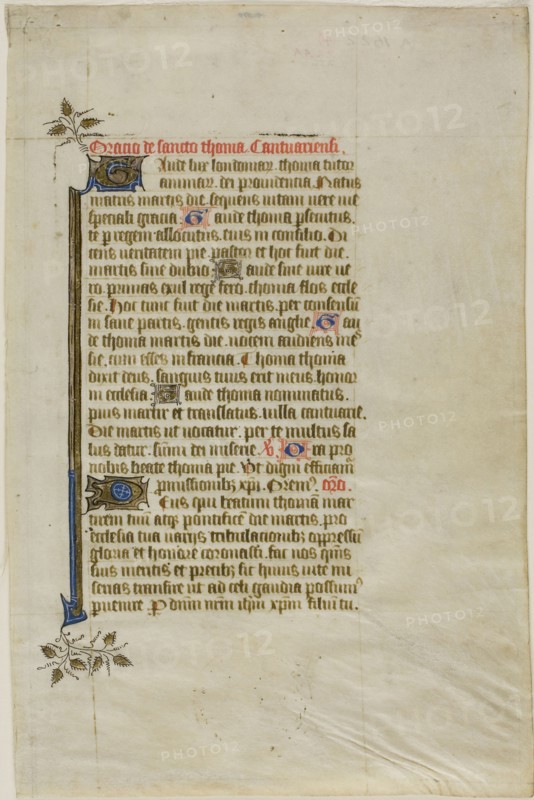 Oracio de sancto thoma Cantuariensi.
Gaude lux londoniarum thoma tutor
animarum dei providentia. Natus
matris martis die sequens vitam vere vie
speciali gracia. Gaude thoma psecutus.
te p regem allocutus. tuis in consilio. Di
cens veritatem pie pastor et hoc fuit die
martis sine dubio. Gaude sine vire ve
ro primas exul rege fero. thoma flos eccle
sie. Hoc tunc fuit die martis. per consensū
in sane partis. gentis regis anglie. Gau
de thoma martis die. nocem audiens mes
sie. cum esses in francia. Thoma thoma
dixit deus. sanguis tuus erit meus. honor
in ecclesia. Gaude thoma nominatus.
pius martir et translatus. villa cantuarie.
Die martis ut vocatur. per te multis sa
lus datur. sūmi dei miserie. V. Ora pro
nobis beate thoma pie. Vt digni efficiam
pmissionibz xpi. Orem. oro.
Deus qui beatum thomā mar
tirem tuū atqz pontificē die martis. pro
ecclesia tua varijs tribulacionibz oppressū
gloria et honore coronasti. fac nos qs
suis meritis et precibz sic huius vite mi
serias transire ut ad celi gaudia possum
puenire. P dnm nrm ihm xpm filiū tu.
PHOTO12